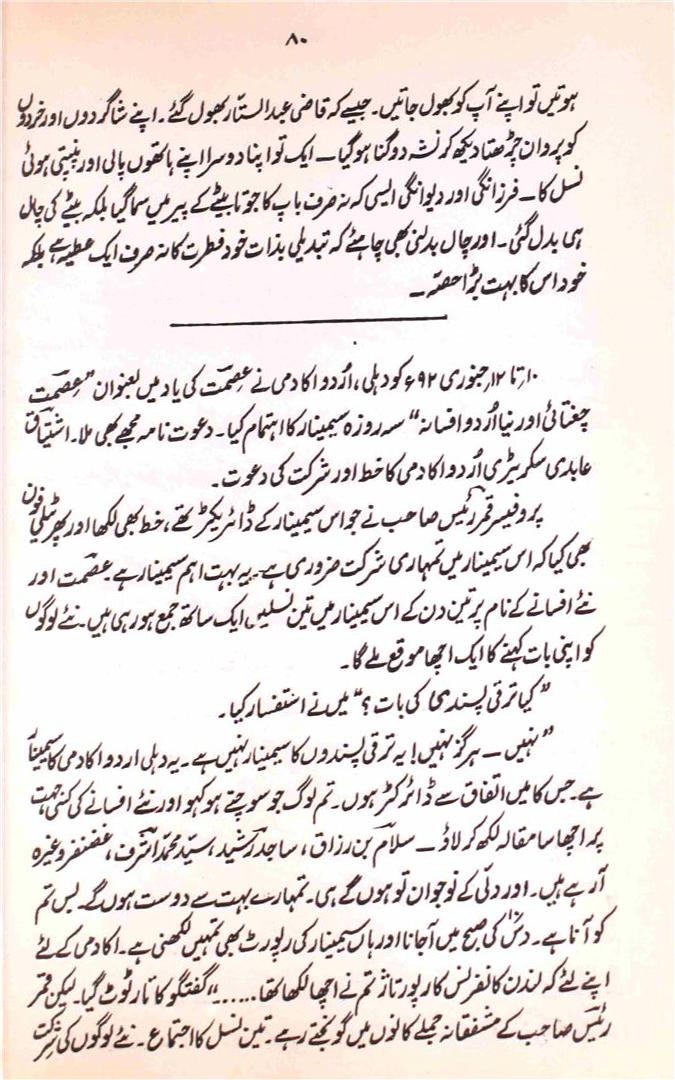 ۸۰
ہوتیں تو اپنے آپ کو بھول جاتیں۔ جیسے کہ قاضی عبدالستار بھول گئے۔ اپنے شاگردوں اور خردوں
کو پروان چڑھتا دیکھ کر نشہ دوگنا ہوگیا ـ ایک تو اپنا دوسرا اپنے ہاتھوں پالی اور پنپتی ہوئی
نسل کا ـ فرزانگی اور دیوانگی ایسی کہ نہ صرف باپ کا جوتا بیٹے کے پیر میں سماگیا بلکہ بیٹے کی چال
ہی بدل گئی۔ اور چال بدلنی بھی چاہئے کہ تبدیلی بذات خود فطرت کا نہ صرف ایک عطیہ ہے بلکہ
خود اس کا بہت بڑا حصّہ ـ
۱۰؍ تا ۱۲؍ جنوری ۹۲ء کو دہلی، اُردو اکادمی نے عصمت کی یاد میں بعنوان "عصمت
چغتائی اور نیا اُردو افسانہ" سہ روزہ سیمینار کا اہتمام کیا۔ دعوت نامہ مجھے بھی ملا۔ اشتیاق
عابدی سکریٹری اُردو اکادمی کا خط اور شرکت کی دعوت۔
پروفیسر قمر رئیس صاحب نے جو اس سیمینار کے ڈائریکٹر تھے، خط بھی لکھا اور پھر ٹیلی فون
بھی کیا کہ اس سیمینار میں تمہاری شرکت ضروری ہے۔ یہ بہت اہم سیمینار ہے عصمت اور
نئے افسانے کے نام پر تین دن کے اس سیمینار میں تین نسلیں ایک ساتھ جمع ہورہی ہیں۔ نئے لوگوں
کو اپنی بات کہنے کا ایک اچھا موقع ملے گا۔
"کیا ترقی پسندی کی بات؟" میں نے استفسار کیا۔
"نہیں ـ ہرگز نہیں! یہ ترقی پسندوں کا سیمینار نہیں ہے۔ یہ دہلی اردو اکادمی کا سیمینار
ہے۔ جس کا میں اتفاق سے ڈائرکٹر ہوں۔ تم لوگ جو سوچتے ہو کہو اور نئے افسانے کی کسی جہت
پر اچھا سا مقالہ لکھ کر لاؤ ـ سلام بن رزاق، ساجد رشید، سیّد محمد اشرف، غضنفر وغیرہ
آرہے ہیں۔ اور دلّی کے نوجوان تو ہوں گے ہی۔ تمہارے بہت سے دوست ہوں گے۔ بس تم
کو آنا ہے۔ دس کی صبح میں آجانا اور ہاں سیمینار کی رپورٹ بھی تمہیں لکھنی ہے۔ اکادمی کے لئے
اپنے لئے کہ لندن کانفرنس کا رپورتاژ تم نے اچھا لکھا تھا......" گفتگو کا تار ٹوٹ گیا۔ لیکن قمر
رئیس صاحب کے مشفقانہ جملے کانوں میں گونجتے رہے۔ تین نسل کا اجتماع۔ نئے لوگوں کی شرکت